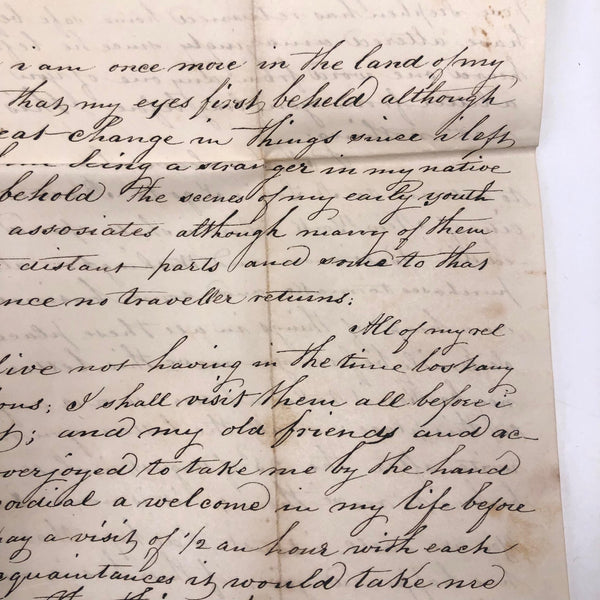 i am once more in the land of my
that my eyes first beheld although
eat change in things since i left
being a stranger in my native
behold the scenes of my early youth
assosiates although many of them
distant parts and some to that
nce no traveller returns;
All of my rel
live not having in the time lost any
ons; I shall visit them all before i
t; and my old friends and ac-
verjoyed to take me by the hand
ordial a welcome in my life before
pay a visit of 1/2 an hour with each
cquaintances it would take me